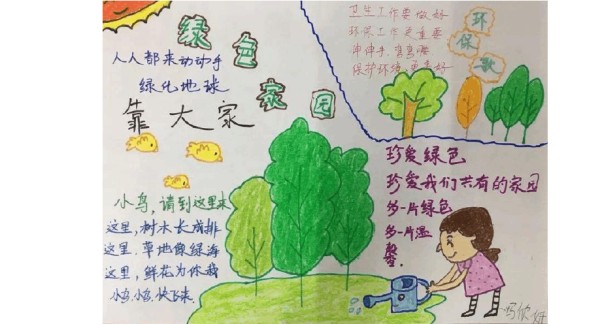 绿色家园
人人都来动动手
绿化地球
靠大家
环保歌
卫生工作要做好
环保工作更重要
伸伸手，弯弯腰
保护环境，更美好
珍爱绿色
珍爱我们共有的家园
多一片绿色
多一片湿
小鸟，请到这里来
这里，树木长成排
这里，草地像绿海
这里，鲜花为你栽
小鸟，小鸟，快飞来.